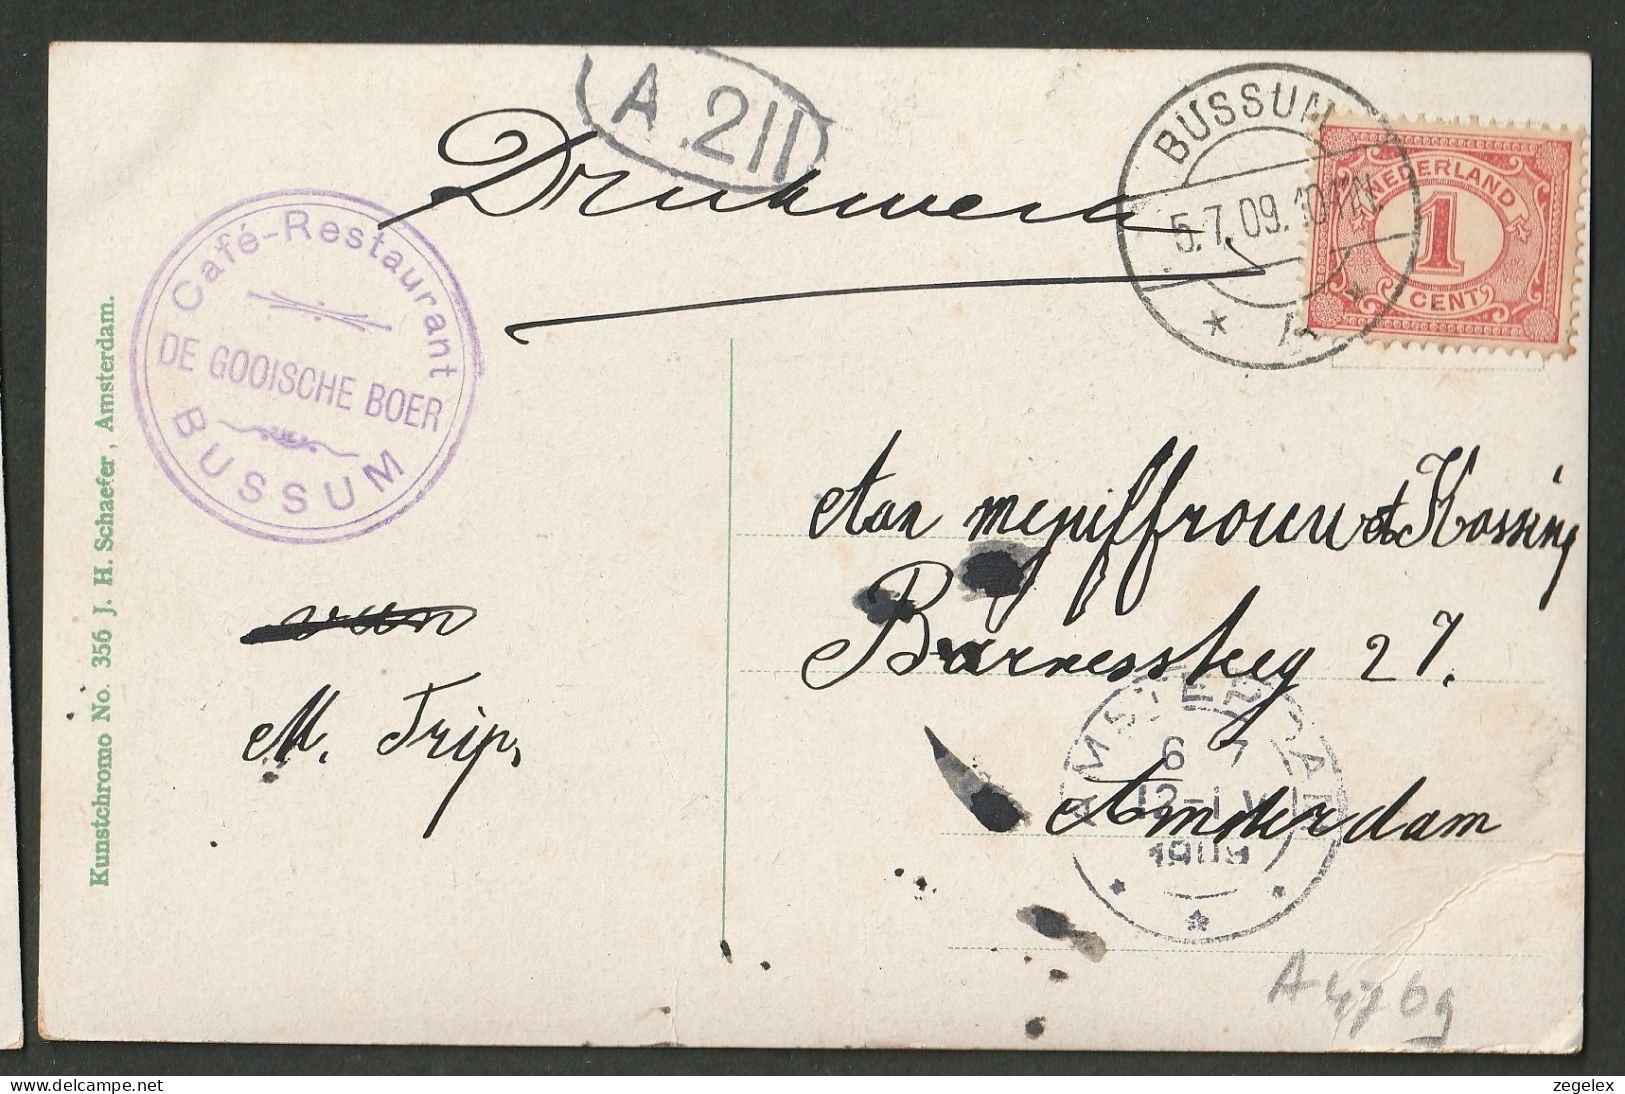 A.211
Drukwerk
BUSSUM
5.7.09.10
NEDERLAND
1
CENT
Café-Restaurant
DE GOOISCHE BOER
BUSSUM
Kunstchromo No. 356 J. H. Schaefer, Amsterdam.
Aan mejuffrouw
27.
M. Trip,
AMSTERDAM
6 7
12-1 V
1909
Amsterdam
A 4769
zegelex